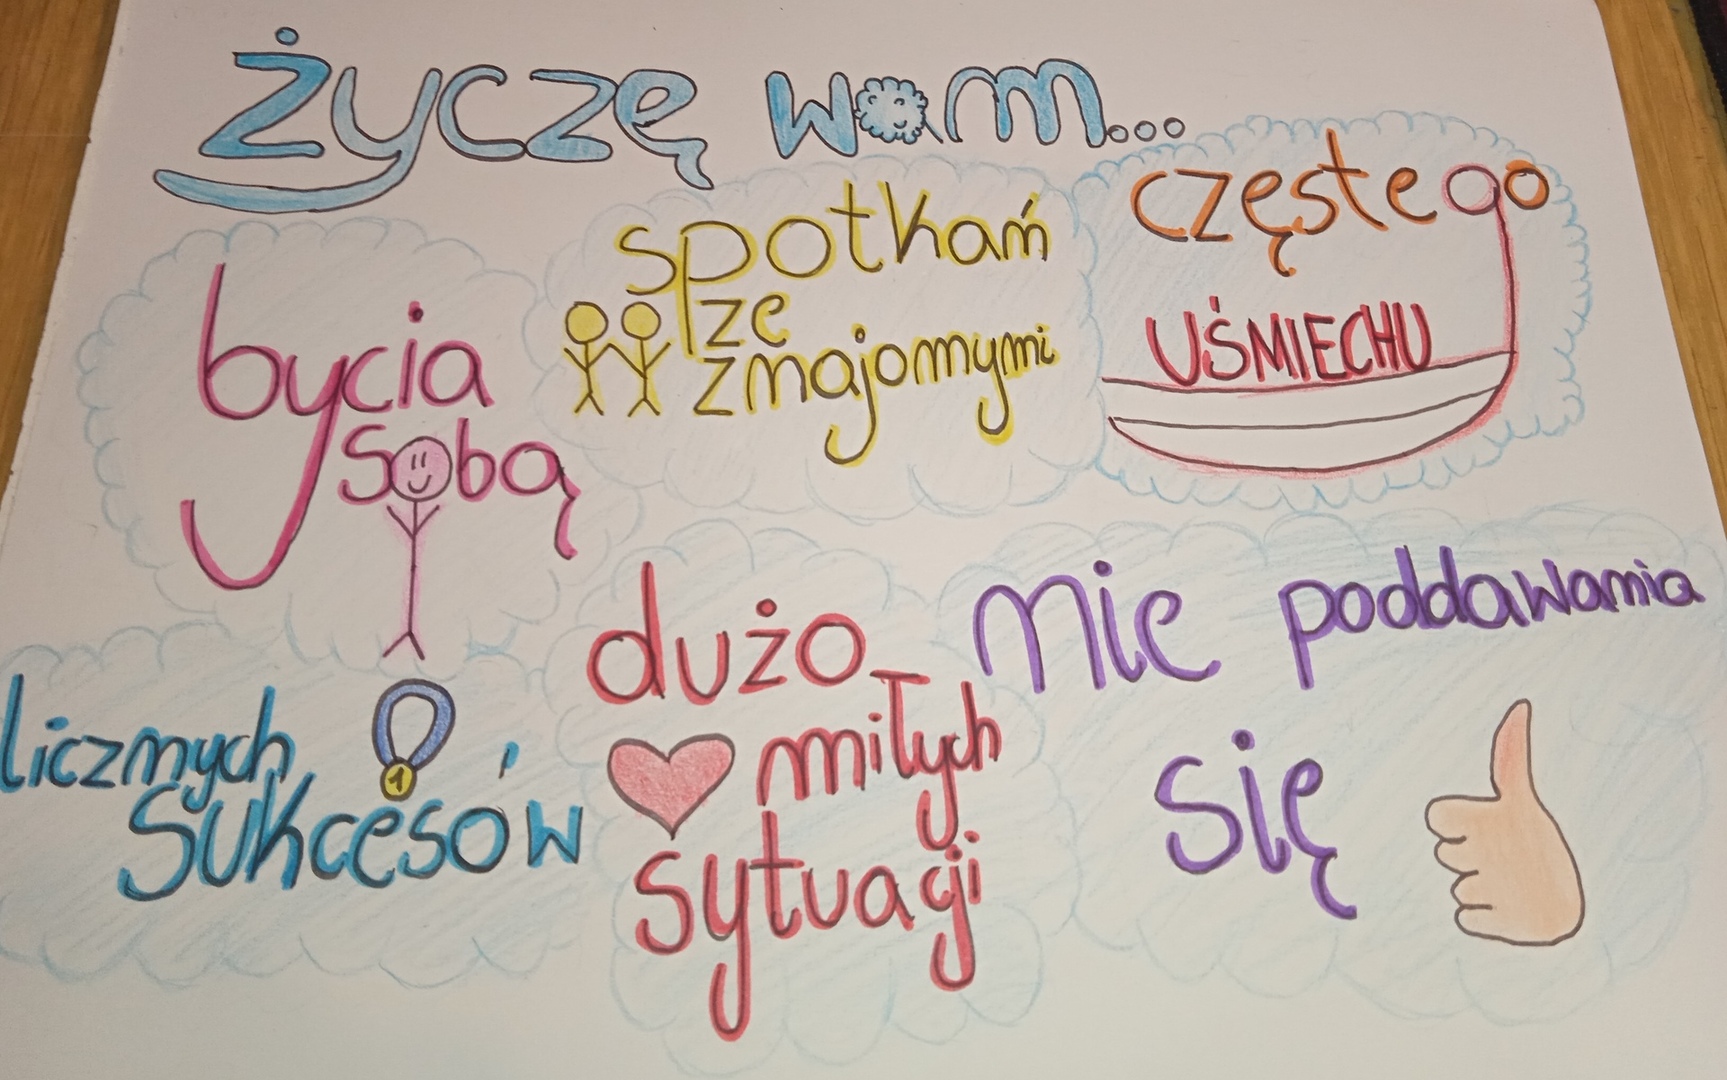 życzę wam...
bycia
sobą
spotkań
ze
znajomymi
częstego
UŚMIECHU
licznych
sukcesów
1
dużo
miłych
sytuacji
nie poddawania
się